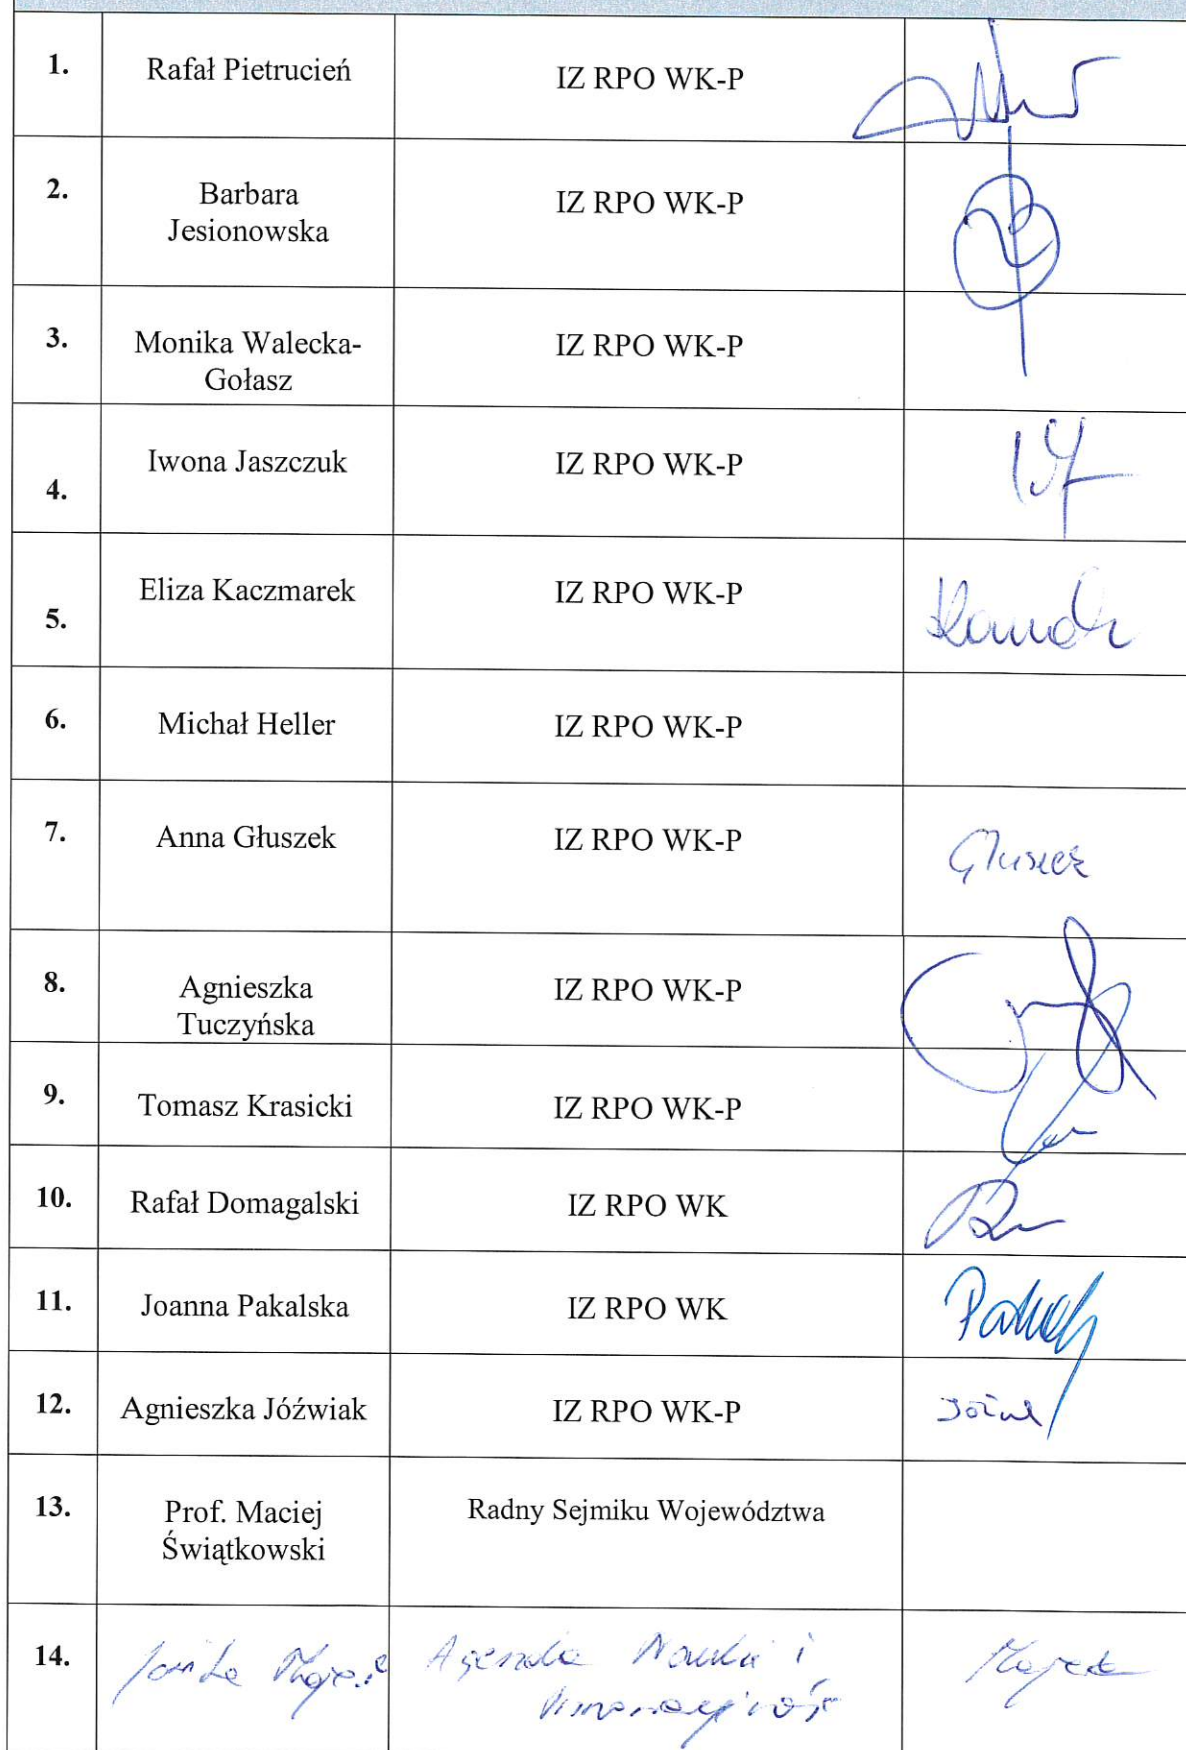 1. Rafał Pietrucień IZ RPO WK-P
2. Barbara Jesionowska IZ RPO WK-P
3. Monika Walecka-Gołasz IZ RPO WK-P
4. Iwona Jaszczuk IZ RPO WK-P
5. Eliza Kaczmarek IZ RPO WK-P
6. Michał Heller IZ RPO WK-P
7. Anna Głuszek IZ RPO WK-P Głuszek
8. Agnieszka Tuczyńska IZ RPO WK-P
9. Tomasz Krasicki IZ RPO WK-P
10. Rafał Domagalski IZ RPO WK
11. Joanna Pakalska IZ RPO WK
12. Agnieszka Jóźwiak IZ RPO WK-P
13. Prof. Maciej Świątkowski Radny Sejmiku Województwa
14. Agenda Nauki i